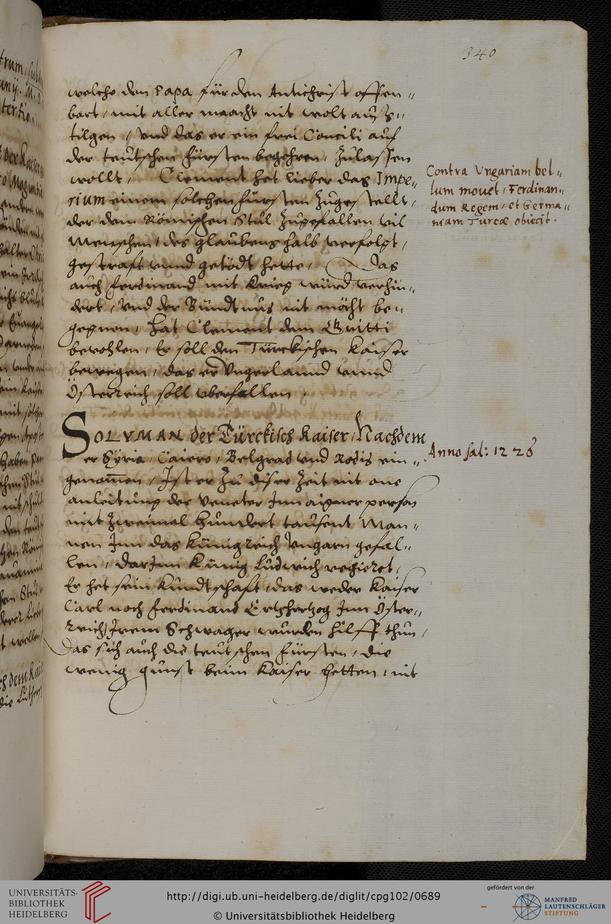 340
welche den Papa für den Antichrist offen„
bart, mit aller maacht nit wolt auß„
tilgen, und das er ein frei Concili auf
der teutschen fürsten begehren, zulassen
wollt, Clement het lieber das Impe„
rium einem solchen fürsten zugestellt,
der dem Römischen Stul zugefallen vil
Menschen, des glaubens halb verfolgt,
gestrafft unnd getödt hette, Das
auch Ferdinand mit Krieg würd verhin„
dert, und der Bündtnus nit möcht be„
gegnen, hat Clement dem Gritti
bevohlen, Er soll den Türckischen Kaiser
bewegen, das er Ungerlannd unnd
Österreich soll uberfallen.
Contra Vngariam bel„
lum mouet, Ferdinan„
dum Regem, et Germa„
niam Turcæ obiicit.
SOLYMAN der Türckisch Kaiser, Nachdem
er Syria, Cairo, Belgrad und Rodis ein„
genomen, Ist er zu diser Zeit mit
anleitung der Veneter Inn aigner person
mit zweimal hundert tausent Man„
nen Inn das Künigreich Ungarn gefal„
len, darinn Künig Ludwich regieret,
Er het sein Kundtschaft, das weder Kaiser
Carl noch Ferdinand Ertzhertzog Inn Öster„
reich, Irem Schwager wurden hilff thun,
Das sich auch die teutschen Fürsten, die
wenig gunst beim Kaiser hetten, nit
Anno sal: 1226
UNIVERSITÄTS-
BIBLIOTHEK
HEIDELBERG
http://digi.ub.uni-heidelberg.de/diglit/cpg102/0689
© Universitätsbibliothek Heidelberg
gefördert von der
MANFRED
LAUTENSCHLÄGER
STIFTUNG